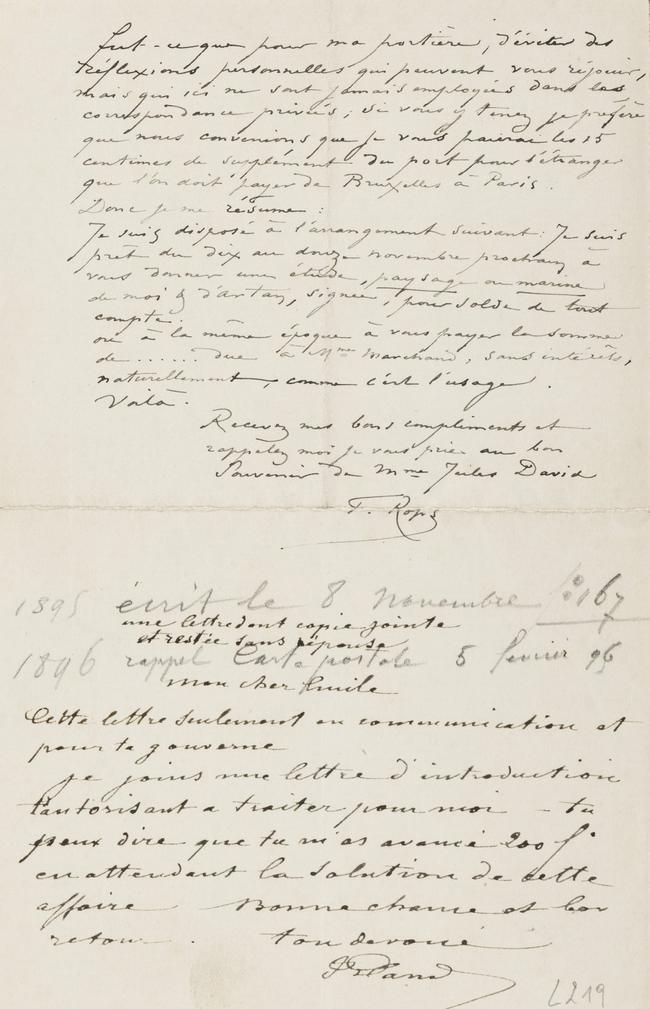 fut-ce que pour ma portière, d'éviter des
réflexions personnelles qui peuvent vous réjouir,
mais qui ici ne sont jamais employées dans les
correspondances privées ; si vous y tenez je préfère
que nous convenions que je vous paierai les 15
centimes de supplément du port pour l'étranger
que l'on doit payer de Bruxelles à Paris.
Donc je me résume :
Je suis disposé à l'arrangement suivant : Je suis
prêt du dix au douze novembre prochain à
vous donner une étude, paysage ou marine
de moi & d'Artan, signée, pour solde de tout
compte.
ou à la même époque à vous payer la somme
de ...... due à Mme Marchand, sans intérêts,
naturellement, comme c'est l'usage.
Voilà.
Recevez mes bons compliments et
rappelez moi je vous prie au bon
Souvenir de Mme Jules David
F. Rops
1895 écrit le 8 novembre 167
une lettre dont copie jointe
et restée sans réponse
1896 rappel Carte postale 5 février 96
mon cher Emile
Cette lettre seulement en communication et
pour ta gouverne
je joins une lettre d'introduction
t'autorisant a traiter pour moi - tu
peux dire que tu m'as avancé 200 f
en attendant la solution de cette
affaire Bonne chance et bon
retour. ton dévoué
L219